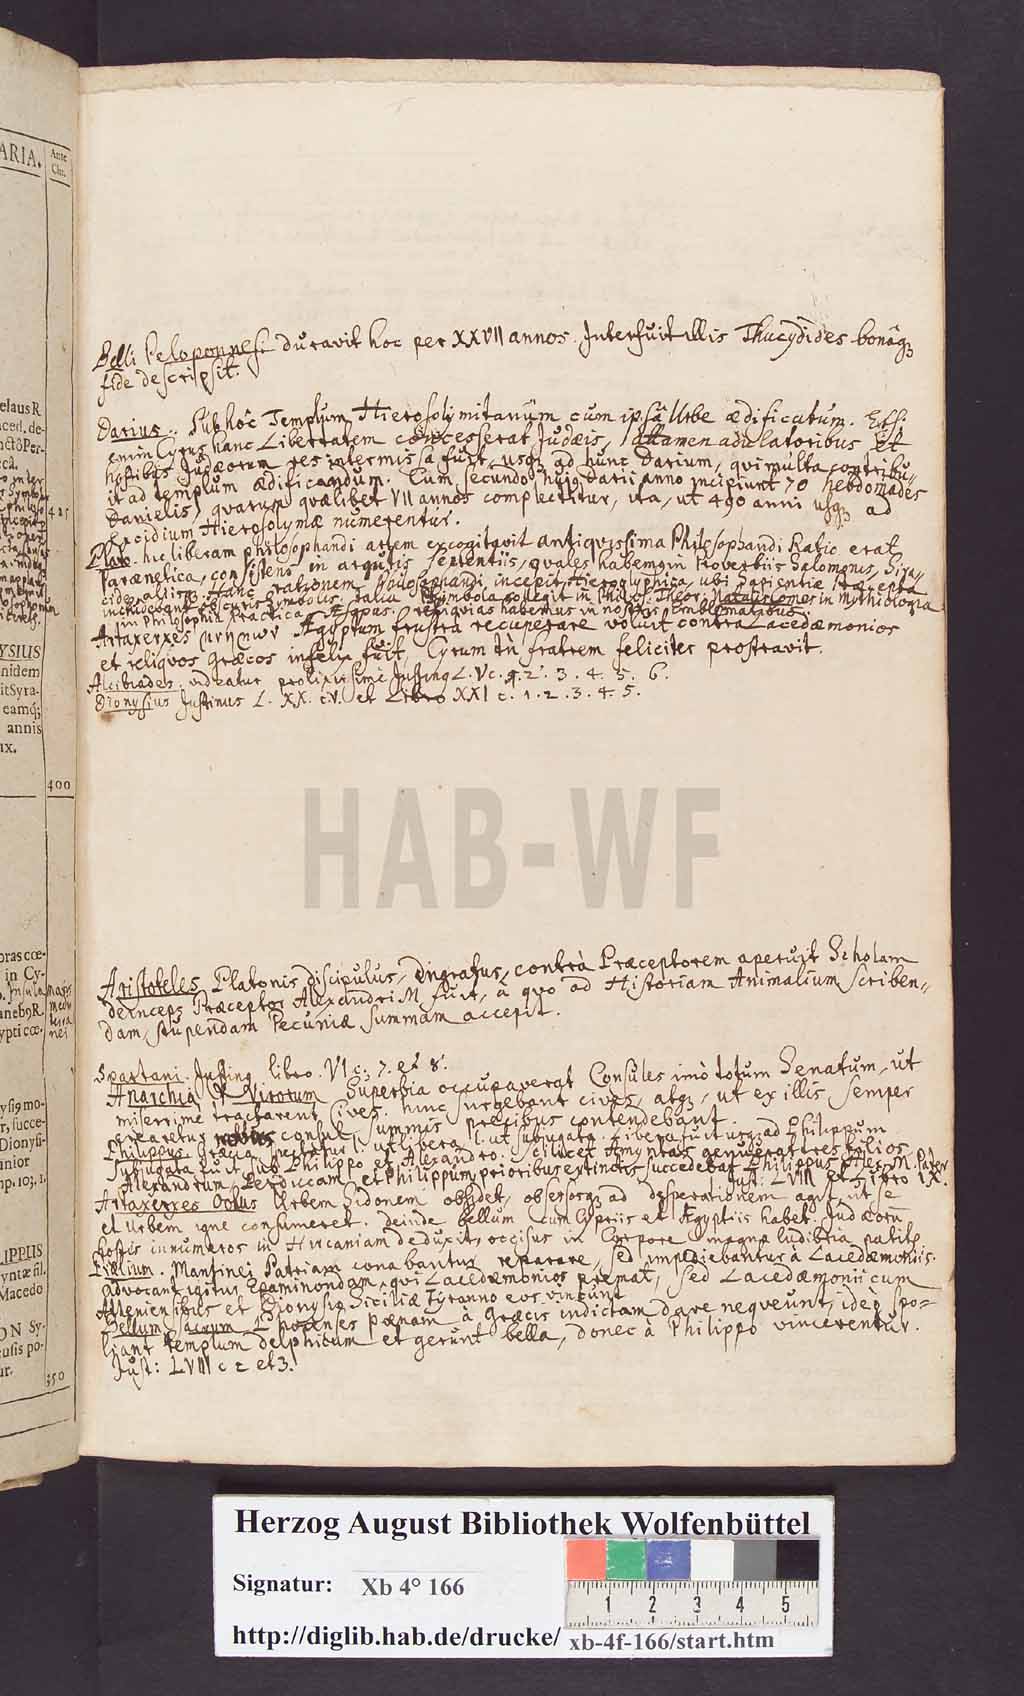 ARIA.
Ante
Chr.
elaus R
aced. de-
nctô Per-
ecâ.
425
YSIUS
nidem
it Syra-
eamq;
annis
ıx.
400
oras cœ-
in Cy-
Insula
aneb9 R.
ypti cœ-
ysi9 mo-
r, succe-
Dionysi-
unior
mp. 103. 1.
LIPPUS
yntæ fil.
Macedo
ON Sy-
cusis po-
ur.
350
Belli Peloponnesi duravit hoc per XXVII annos. Interfuit illis Thucydides bonâq3
fide descripsit.
Darius. Sub hôc Templum Hierosolymitanũm cum ipsâ Urbe ædificatum. Etsi
enim Cyrus hanc Libertatem concesserat Judæis, attamen adulatoribus et
hostibus Judæorum res intermissa fuit, usq3 ad hunc Darium, qui multa contribu-
it ad templum ædificandum. Cum secundo huj9 Darii anno incipiunt 70 hebdomades
Danielis, quarum quælibet VII annos complectitur, ita, ut 490 anni usq3 ad
excidium Hierosolymæ numerentur.
Plato. hic liberam philosophandi artem excogitavit antiquissima Philosophandi Ratio erat
Parænetica, consistens in argutis sententiis, quales habemus in Proverbiis Salomonis, Sira-
cide, aliisq3. Hanc rationem Philosophandi incepit Hieroglyphica, ubi Sapientiæ Præcepta
includebant obscuris Symbolis. talia Symbola collegit in Philos. Theor. Natalis Comes in Mythologia
in Philosophia Practica Æsopus. reliquias habemus in nostris Emblematibus.
Artaxerxes μνημων Ægyptum frustra recuperare voluit contra Lacedæmonios
et reliquos Græcos infelix fuit. Cyrum tñ fratrem feliciter prostravit.
Alcibiades. videatur prolixissimè Justin9 L. V c. 1. 2. 3. 4. 5. 6.
Dionysius Justinus L. XX. c. V. et Libro XXI c. 1. 2. 3. 4. 5.
HAB-WF
Aristoteles Platonis discipulus, Ingratus, contrà Præceptorem aperuit Scholam
deinceps Præceptor Alexandri M. fuit, à quo ad Historiam Animalium scriben-
dam, stupendam Pecuniæ summam accepit.
Spartani. Justin9 libro. VI c. 7. et 8.
Anarchia X Virorum Superbia occupaverat Consules imò totum Senatum, ut
miserrimè tractarent Cives. hinc surgebant cives, atq3, ut ex illis semper
crearetur consul, summis precibus contendebant.
Philippus. Græcia spectatur 1. ut libera. 2. ut subjugata. Libera fuit usq3 ad Philippum
Subjugata fuit sub Philippo et Alexandro. scilicet Amyntas genuerat tres filios
Alexandrum, Perdiccam et Philippum, prioribus extinctis succedebat Philippus Alex. M. Pater
Just: L VIII et Libro IX.
Artaxerxes Ochus Urbem Sidonem obsidet, obsessosq3 ad desperationem agit, ut se
et Urbem igne consumeret. deinde bellum cum Cypriis et Ægyptiis habet. Judæorũ
hostis innumeros in Hircaniam deduxit, occisus in Corpore magna ludibria patit.
Exilium. Mantinei Patriam conabantur reparare, sed impediebantur à Lacedæmoniis.
advocant igitur Epaminondam, qui Lacedæmonios premat, sed Lacedæmonii cum
Atheniensibus et Dionysio Siciliæ Tyranno eos vincunt
Bellum sacrum Phocenses pœnam à Græcis indictam dare nequeunt, ideò spo-
liant templum delphicum et gerunt bella, donec à Philippo vincerentur.
Just: L VIII c 2 et 3.
Herzog August Bibliothek Wolfenbüttel
Signatur: Xb 4° 166
http://diglib.hab.de/drucke/ xb-4f-166/start.htm
1 2 3 4 5